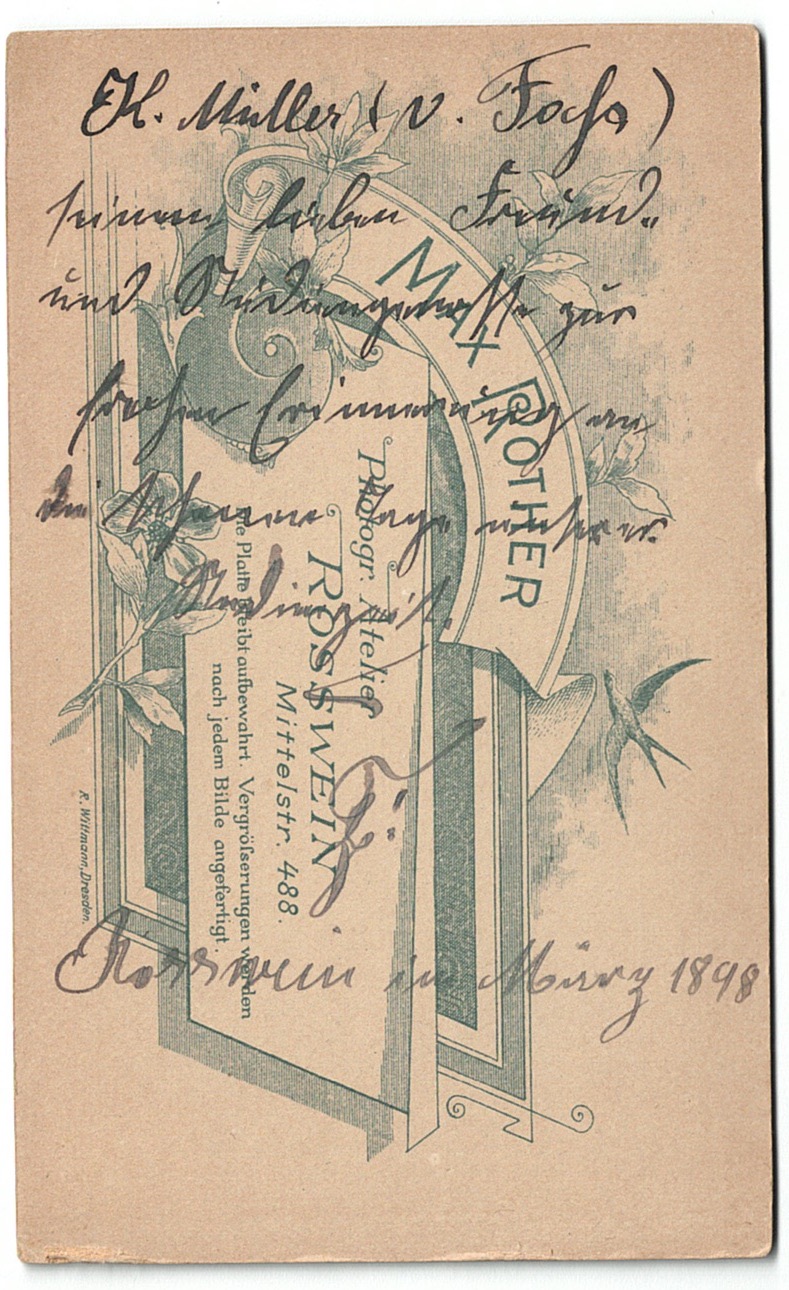 K. Müller (v. Facha)
seinem lieben Freund-
und Studiengenosse zur
frohen Erinnerung an
die schönen Tage unserer
Studienzeit.
Rosswein im März 1898
MAX ROTHER
Photogr. Atelier
ROSSWEIN
Mittelstr. 488.
Die Platte bleibt aufbewahrt. Vergröſserungen werden
nach jedem Bilde angefertigt.
R. Wittmann, Dresden.